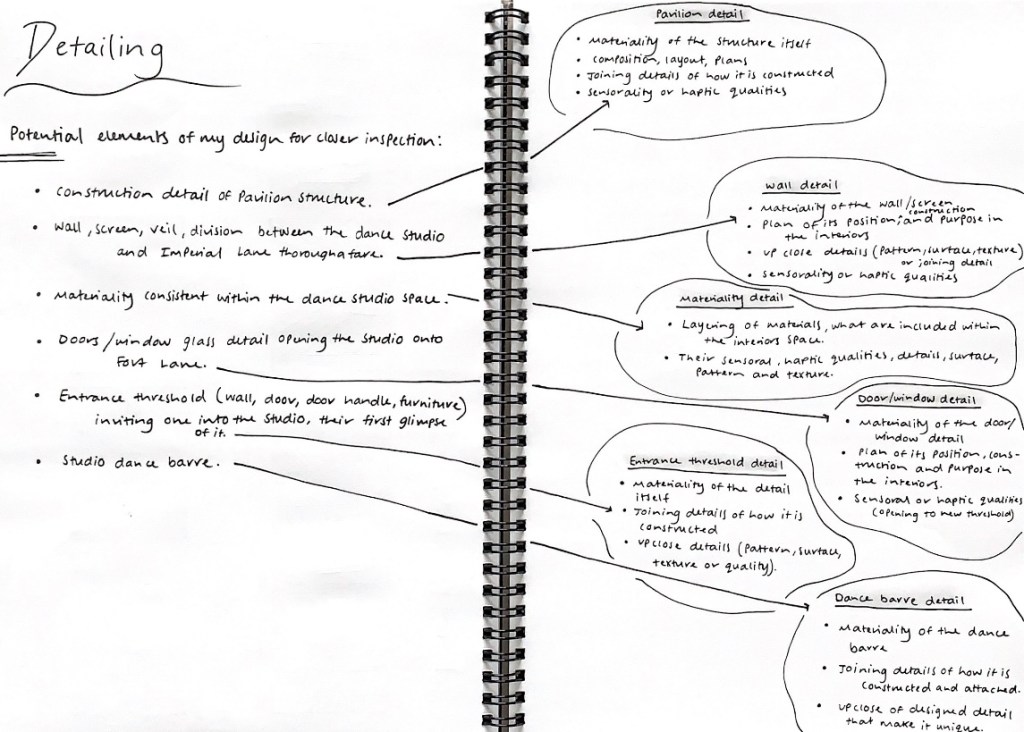 Detailing
Potential elements of my design for closer inspection:
• Construction detail of Pavilion structure.
• Wall, screen, veil, division between the dance studio
and Imperial Lane thoroughfare.
• Materiality consistent within the dance studio space.
• Doors/window glass detail opening the studio onto
Fort Lane.
• Entrance threshold (wall, door, door handle, furniture)
inviting one into the studio, their first glimpse
of it.
• Studio dance barre.
Pavilion detail
• Materiality of the structure itself
• composition, layout, plans
• Joining details of how it is constructed
• Sensorality or haptic qualities
Wall detail
• Materiality of the wall/screen
construction
• Plan of its position, and purpose in
the interiors
• Up close details (pattern, surface, texture)
or joining detail
• Sensorality or haptic qualities
Materiality detail
• Layering of materials, what are included within
the interiors space.
• Their sensoral, haptic qualities, details, surface,
pattern and texture.
Door/window detail
• Materiality of the door/
window detail
• Plan of its position, cons-
truction and purpose in
the interiors.
• Sensoral or haptic qualities
(opening to new threshold)
Entrance threshold detail
• Materiality of the detail
itself
• Joining details of how it is
constructed
• Upclose details (pattern, surface,
texture or quality).
Dance barre detail
• Materiality of the dance
barre
• Joining details of how it is
constructed and attached.
• Upclose of designed detail
that make it unique.